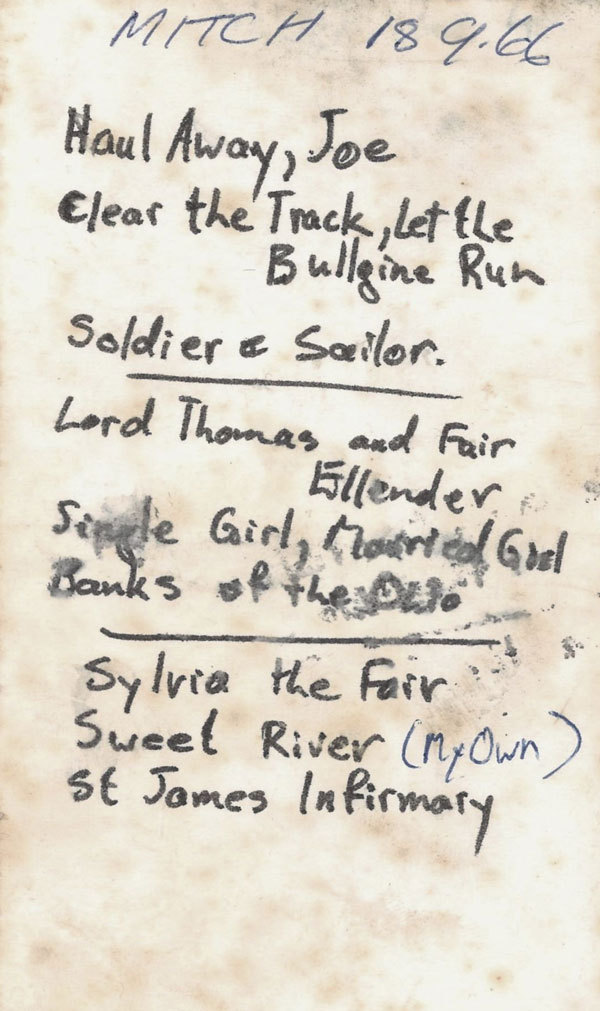 MITCH 18 9.66
Haul Away, Joe
Clear the Track, Let the
Bullgine Run
Soldier & Sailor.
Lord Thomas and Fair
Ellender
Single Girl, Married Girl
Banks of the Ohio
Sylvia the Fair
Sweet River (My Own)
St James Infirmary